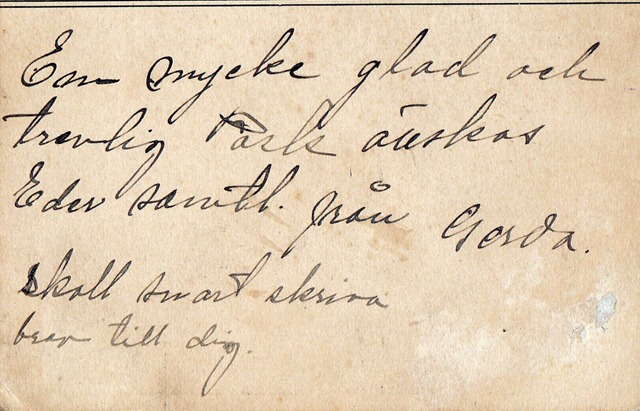 En mycke glad och
trevlig Påsk önskas
Eder samtl. från Gerda.
skall snart skriva
brev till dig.